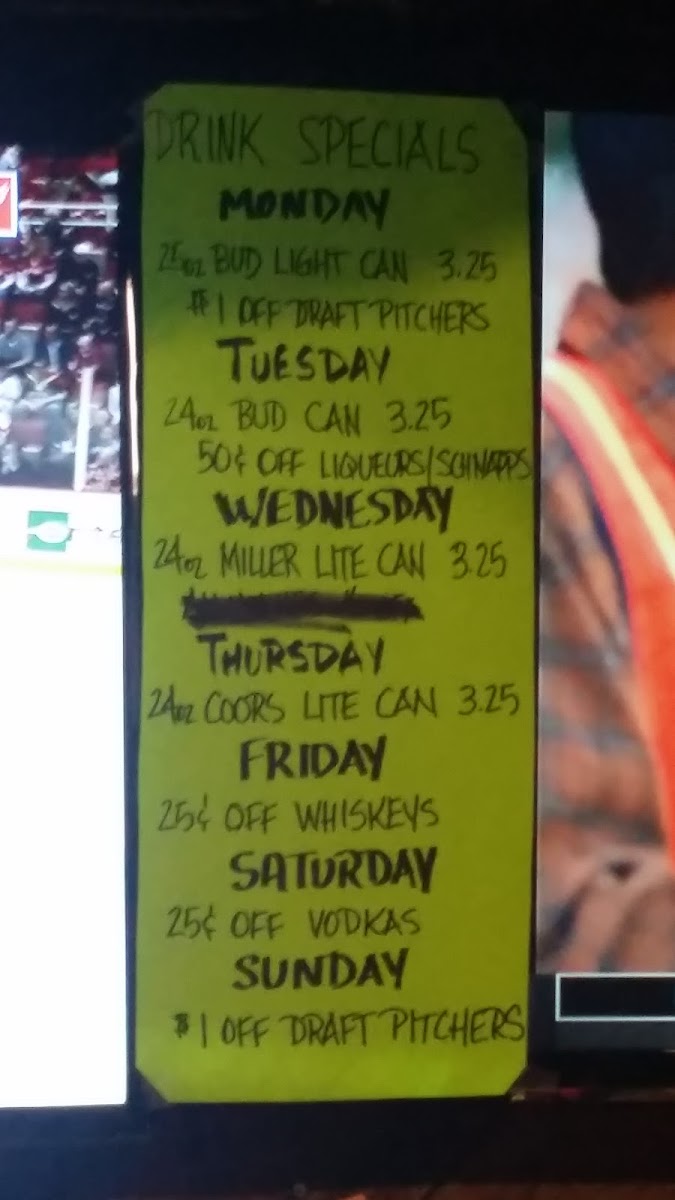 DRINK SPECIALS
MONDAY
25oz BUD LIGHT CAN 3.25
$1 OFF DRAFT PITCHERS
TUESDAY
24oz BUD CAN 3.25
50¢ OFF LIQUEURS/SCHNAPPS
WEDNESDAY
24oz MILLER LITE CAN 3.25
THURSDAY
24oz COORS LITE CAN 3.25
FRIDAY
25¢ OFF WHISKEYS
SATURDAY
25¢ OFF VODKAS
SUNDAY
$1 OFF DRAFT PITCHERS